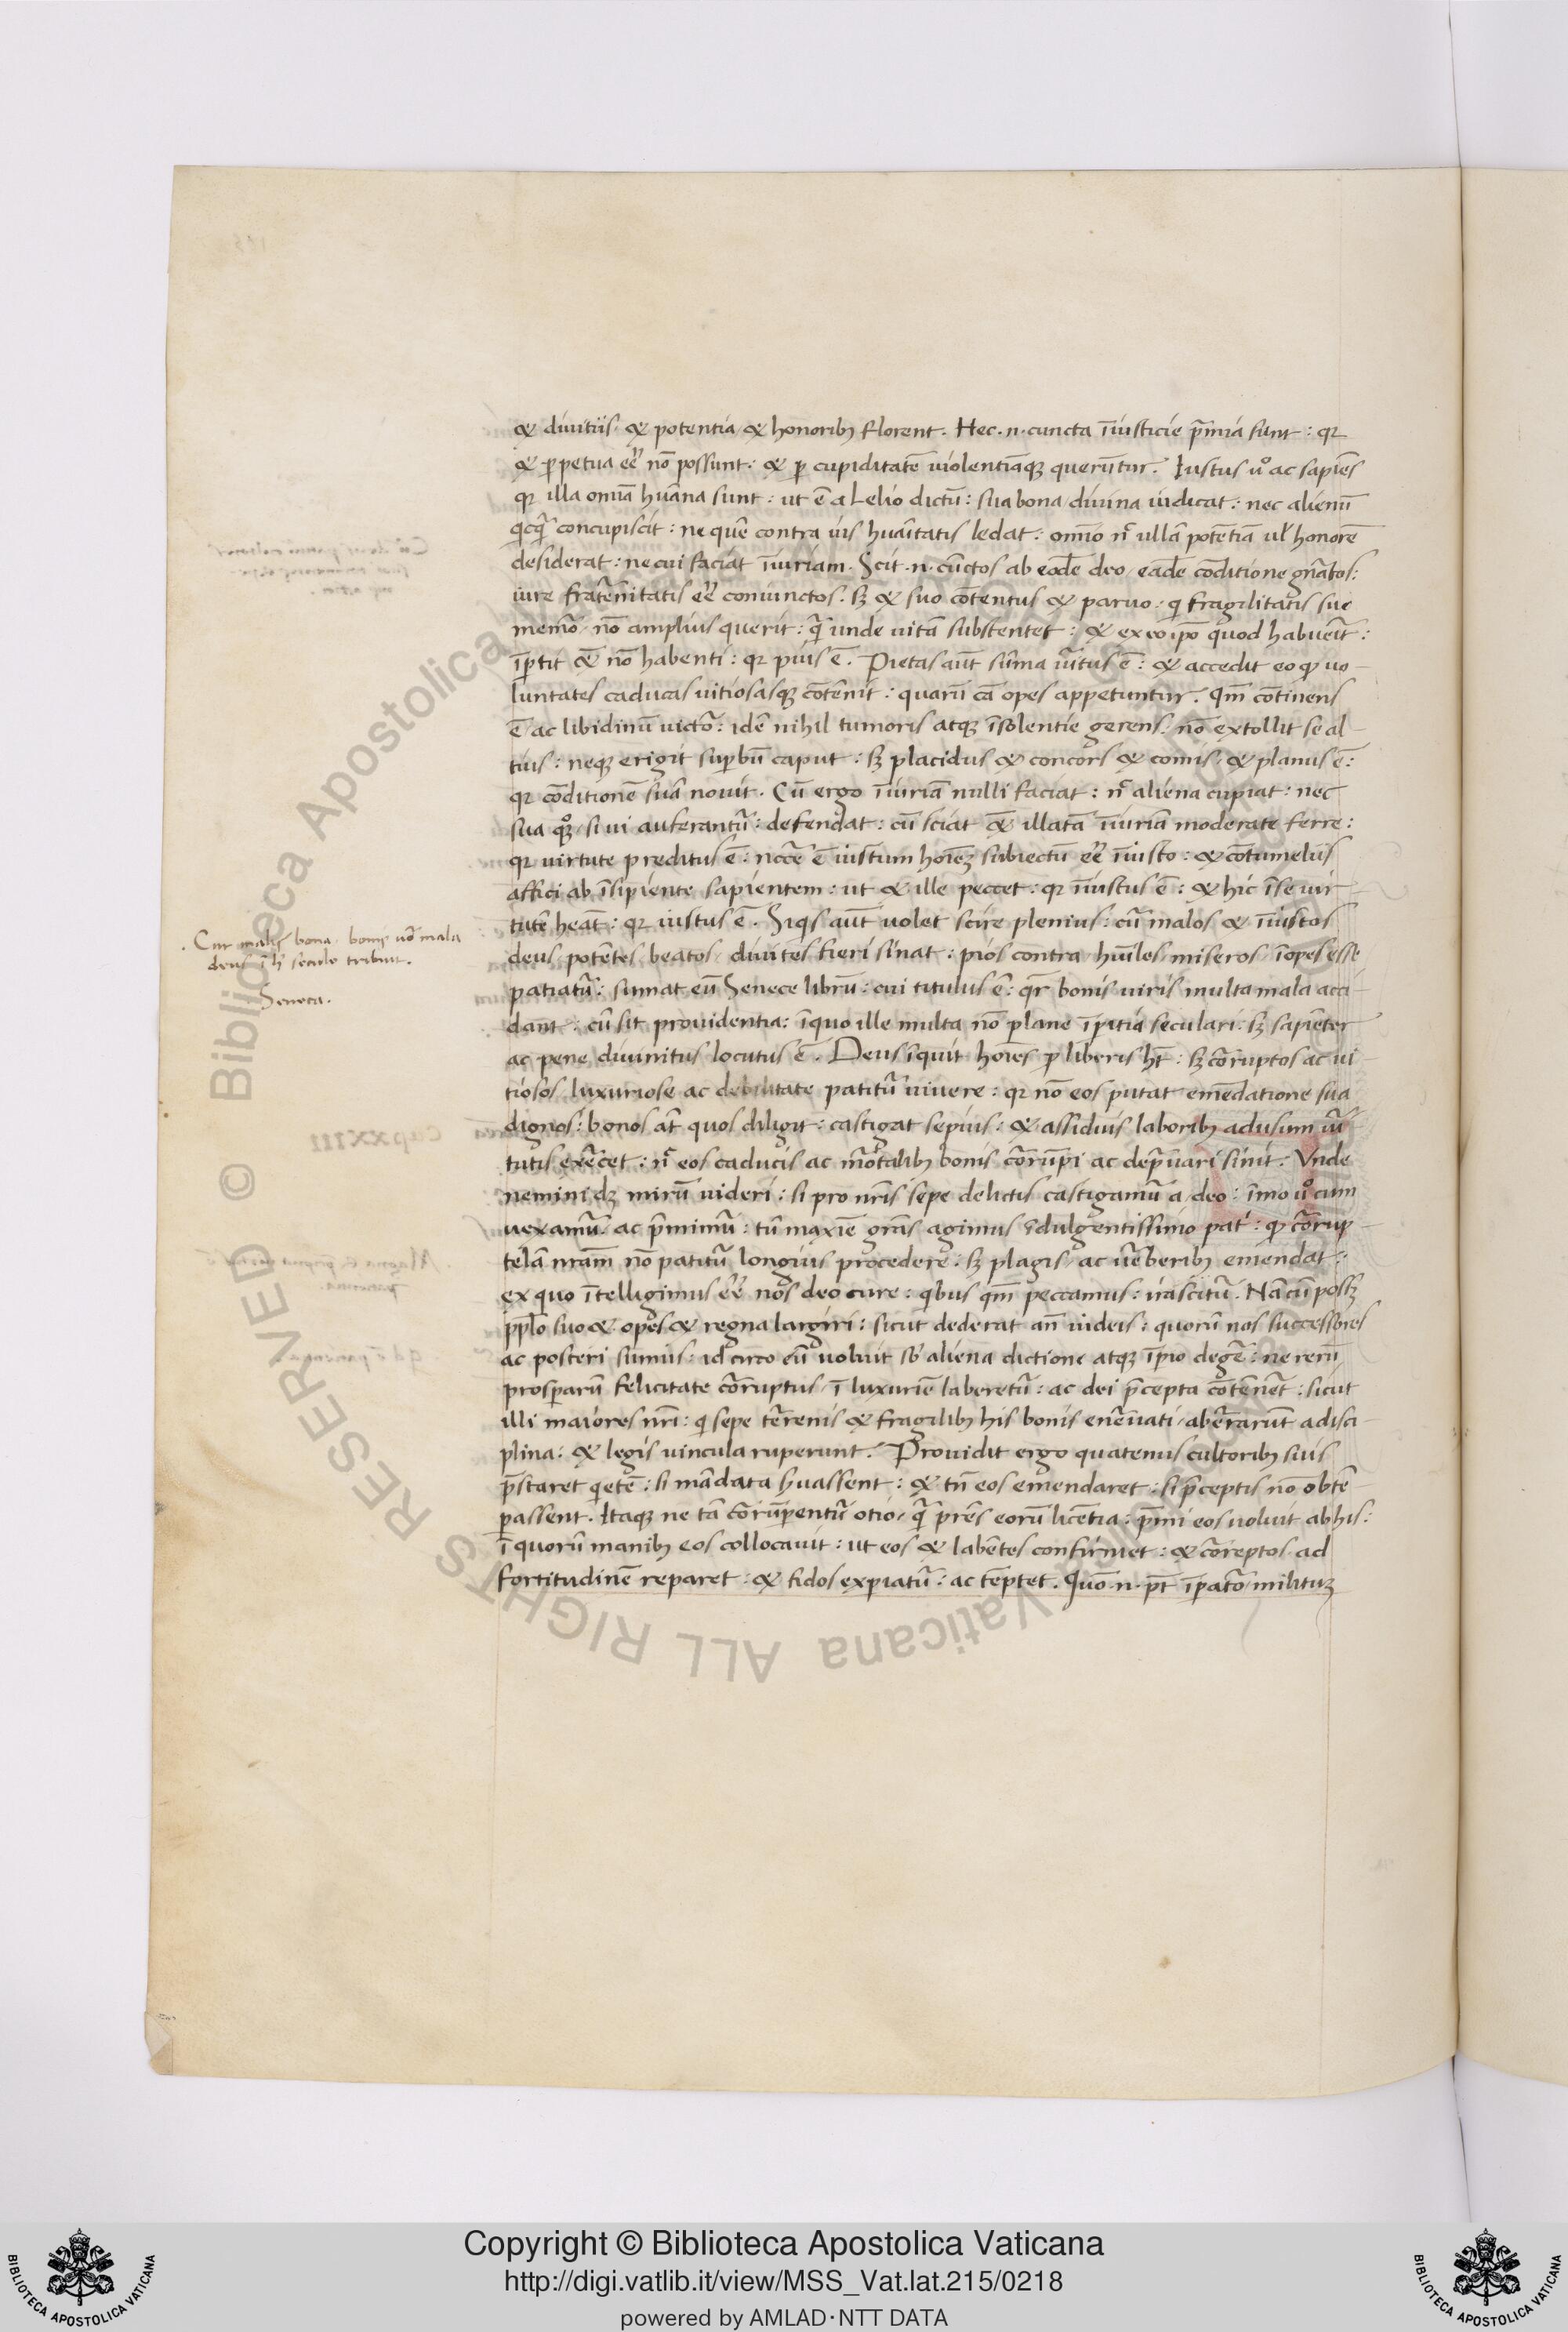 & divitiis & potentia & honoribꝫ florent. Hec .n. cuncta iĩusticie p̃mia sunt: qꝛ
& ꝑpetua eẽ nõ possunt: & ꝑ cupiditatẽ violentiãqꝫ querũtur. Iustus ũo ac sapiẽs
qꝛ illa omĩa huãna sunt: ut ẽ a Lelio dictũ: sua bona divina iudicat: nec alienũ
qicq̃ concupiscit: ne quẽ contra ius huãitatis ledat: omĩo n̾ ullã potẽtiã ul̾ honorẽ
desiderat: ne cui faciat iĩuriam. Scit .n. cũctos ab eodẽ deo eadẽ cõditione gñatos:
iure fratẽnitatis eẽ coniunctos. Sꝫ & suo cõtentus & parvo: qi fragilitatis sue
memõ nõ amplius querit: q̃ unde vitã substentet: & ex eo ip̃o quod habueĩt:
ĩꝑtit & nõ habenti: qꝛ pius ẽ. Pietas aũt sũma ũitus ẽ: & accedit eo qꝙ vo-
luntates caducas vitiosasqꝫ cõtẽnit: quarũ cã opes appetuntur. Qm̃ cõtinens
ẽ ac libidinũ victõ: idẽ nihil tumoris atqꝫ ĩsolentie gerens: nõ extollit se al-
tius: neqꝫ erigit suꝑbũ caput: sꝫ placidus & concors & comis & planus ẽ:
qꝛ cõditionẽ suã novit. Cũ ergo iĩuriã nulli faciat: n̾ aliena cupiat: nec
sua qꝫ si vi auferantũ: defendat: cũ sciat & illatã iĩuriã moderate ferre:
qꝛ virtute preditus ẽ: nccẽ ẽ iustum hoĩeꝫ subiectũ eẽ iĩusto: & cõtumeliis
affici ab ĩsipiente sapientem: ut & ille peccet: qꝛ iĩustus ẽ: & hic ĩ se vir-
tutẽ heãt: qꝛ iustus ẽ. Siqs aũt volet scire plenius: cur̃ malos & iĩustos
deus potẽtes beatos divites fieri sinat: pios contra huĩles miseros ĩopes esse
patiatũ: sumat eũ Senece librũ: cui titulus ẽ: qr̃ bonis viris multa mala acci-
dant: cũ sit providentia: ĩ quo ille multa nõ plane ĩꝑitia seculari: sꝫ sapiẽter
ac pene divinitus locutus ẽ. Deus ĩquit hoĩes ꝓ liberis ht̃: sꝫ cõruptos ac vi-
tiosos luxuriose ac debilitate patitũ vivere: qꝛ nõ eos putat emẽdatione sua
dignos: bonos aũt quos diligit: castigat sepius: & assiduis laboribꝫ ad usum ũi-
tutis exẽcet: n̾ eos caducis ac mõtalibꝫ bonis cõrũpi ac dep̃vari sinit: Unde
nemini dꝫ mirũ videri: si pro nr̃is sepe delictis castigamũ a deo: ĩmo ũo cum
vexamũ ac p̃mimũ: tũ maxĩe grãs agimus ĩdulgentissimo patĩ: qꝙ cõrup-
telã nr̃am nõ patitũ longius procedere: sꝫ plagis ac ũberibꝫ emendat:
ex quo ĩtelligimus eẽ nos deo cure: qbus qm̃ peccamus: irascitũ. Nã cũ possꝫ
pp̃lo suo & opes & regna largiri: sicut dederat añ iudeis: quorũ nos successores
ac posteri sumus: id circo eũ voluit sb̾ aliena dictione atqꝫ ĩꝑio degẽ: ne rerũ
prosꝑarũ felicitate cõruptus ĩ luxuriẽ laberetũ: ac dei p̃cepta cõtẽnẽt: sicut
illi maiores nr̃i: qi sepe tẽrenis & fragilibꝫ his bonis enẽvati abẽrarũt a disci-
plina: & legis vincula ruperunt. Providit ergo quatenus cultoribꝫ suis
p̃staret qietẽ: si mãdata s̾vassent: & tñ eos emendaret: si p̃ceptis nõ obtẽ-
ꝑassent. Itaqꝫ ne tã cõrũpentũ otio q̃ prẽs eorũ licẽtia: p̃mi eos voluit ab his:
ĩ quorũ manibꝫ eos collocavit: ut eos & labẽtes confirmet: & cõreptos ad
fortitudinẽ reparet: & fidos expiatũ: ac tẽptet. Quõ .n. pt̃ ĩꝑatõ militũ
. Cur malis bona. bonis ũo mala
deus ĩ h̾ seculo tribuit.
Seneca.
Copyright © Biblioteca Apostolica Vaticana
http://digi.vatlib.it/view/MSS_Vat.lat.215/0218
powered by AMLAD·NTT DATA
BIBLIOTECA APOSTOLICA VATICANA
BIBLIOTECA APOSTOLICA VATICANA
© Biblioteca Apostolica Vaticana ALL RIGHTS RESERVED